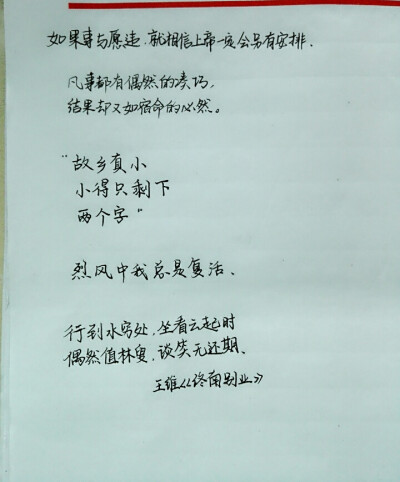 如果事与愿违,就相信上帝一定会另有安排.
凡事都有偶然的凑巧,
结果却又如宿命的必然。
"故乡真小
小得只剩下
两个字"
烈风中我总是复活、
行到水穷处,坐看云起时
偶然值林叟,谈笑无还期、
王维《终南别业》